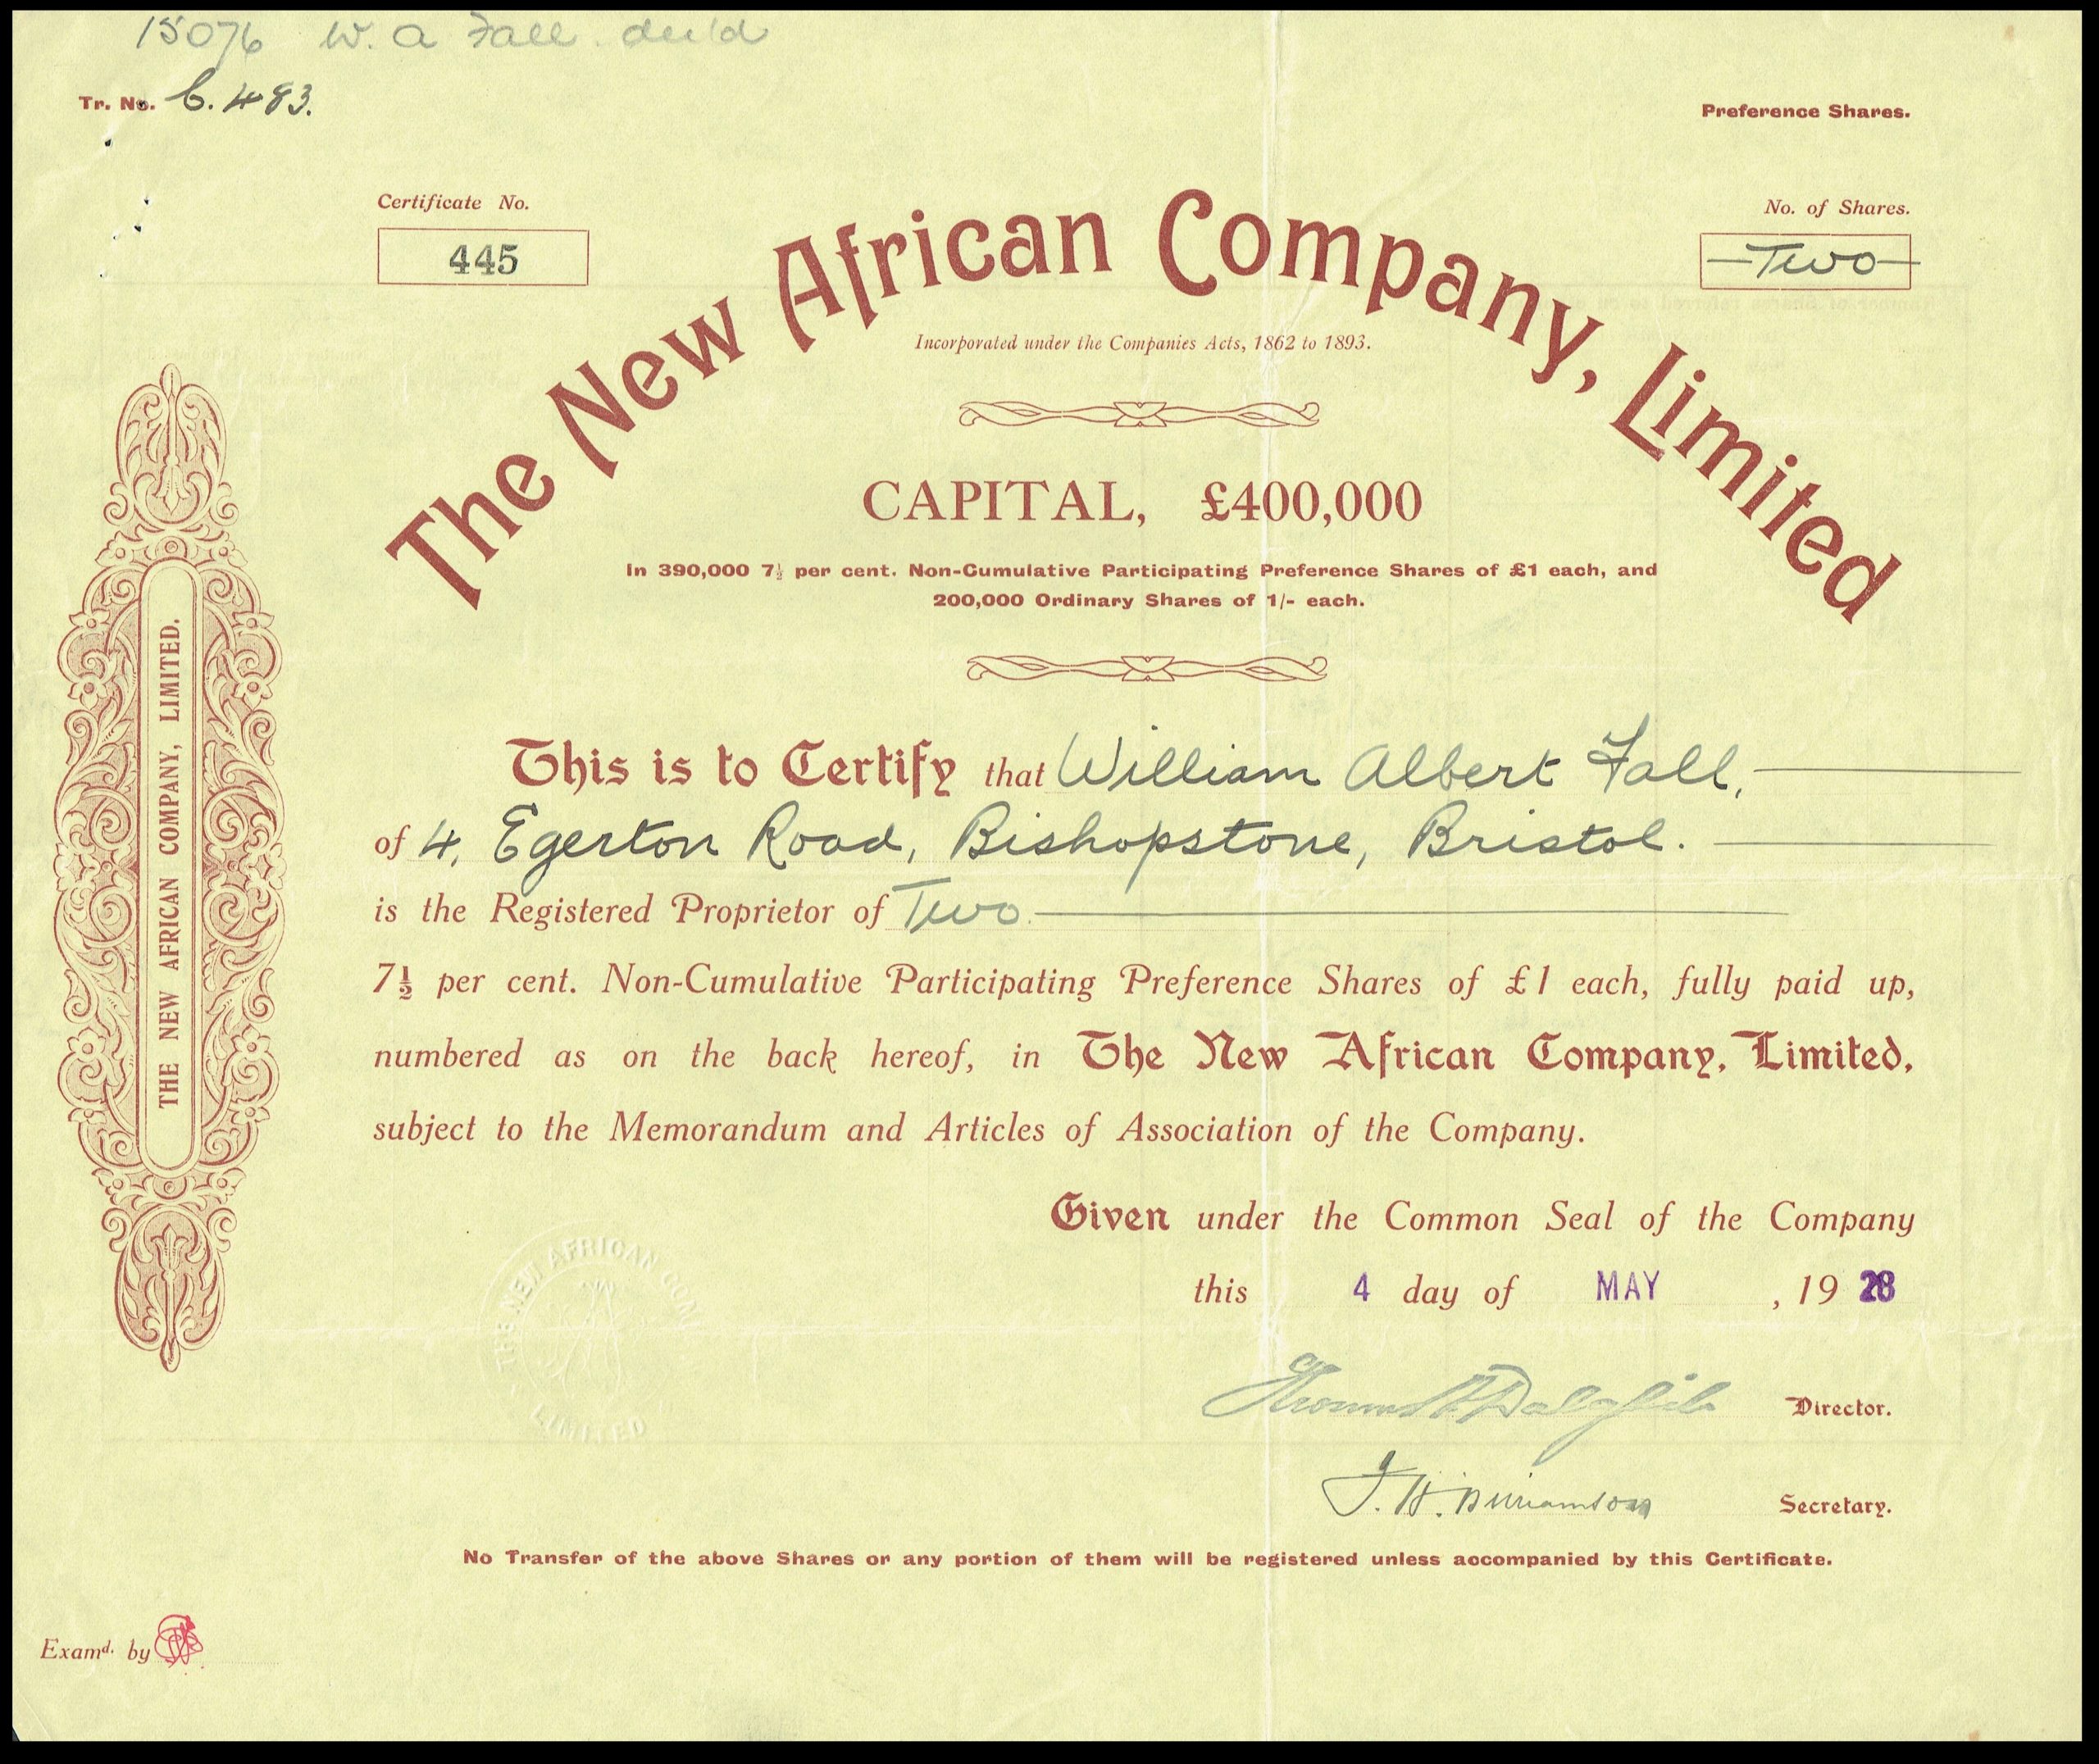 15076 W. A Fall. dec'd
Tr. No. C. 483.
Preference Shares.
Certificate No.
445
No. of Shares.
Two
The New African Company, Limited
Incorporated under the Companies Acts, 1862 to 1893.
CAPITAL, £400,000
In 390,000 7½ per cent. Non-Cumulative Participating Preference Shares of £1 each, and
200,000 Ordinary Shares of 1/- each.
THE NEW AFRICAN COMPANY, LIMITED.
This is to Certify that William Albert Fall,
of 4, Egerton Road, Bishopstone, Bristol.
is the Registered Proprietor of Two
7½ per cent. Non-Cumulative Participating Preference Shares of £1 each, fully paid up,
numbered as on the back hereof, in The New African Company, Limited,
subject to the Memorandum and Articles of Association of the Company.
Given under the Common Seal of the Company
this 4 day of MAY, 1928
THE NEW AFRICAN COMPANY LIMITED
Thomas Dalglish Director.
J. H. Williamson Secretary.
No Transfer of the above Shares or any portion of them will be registered unless accompanied by this Certificate.
Examd. by